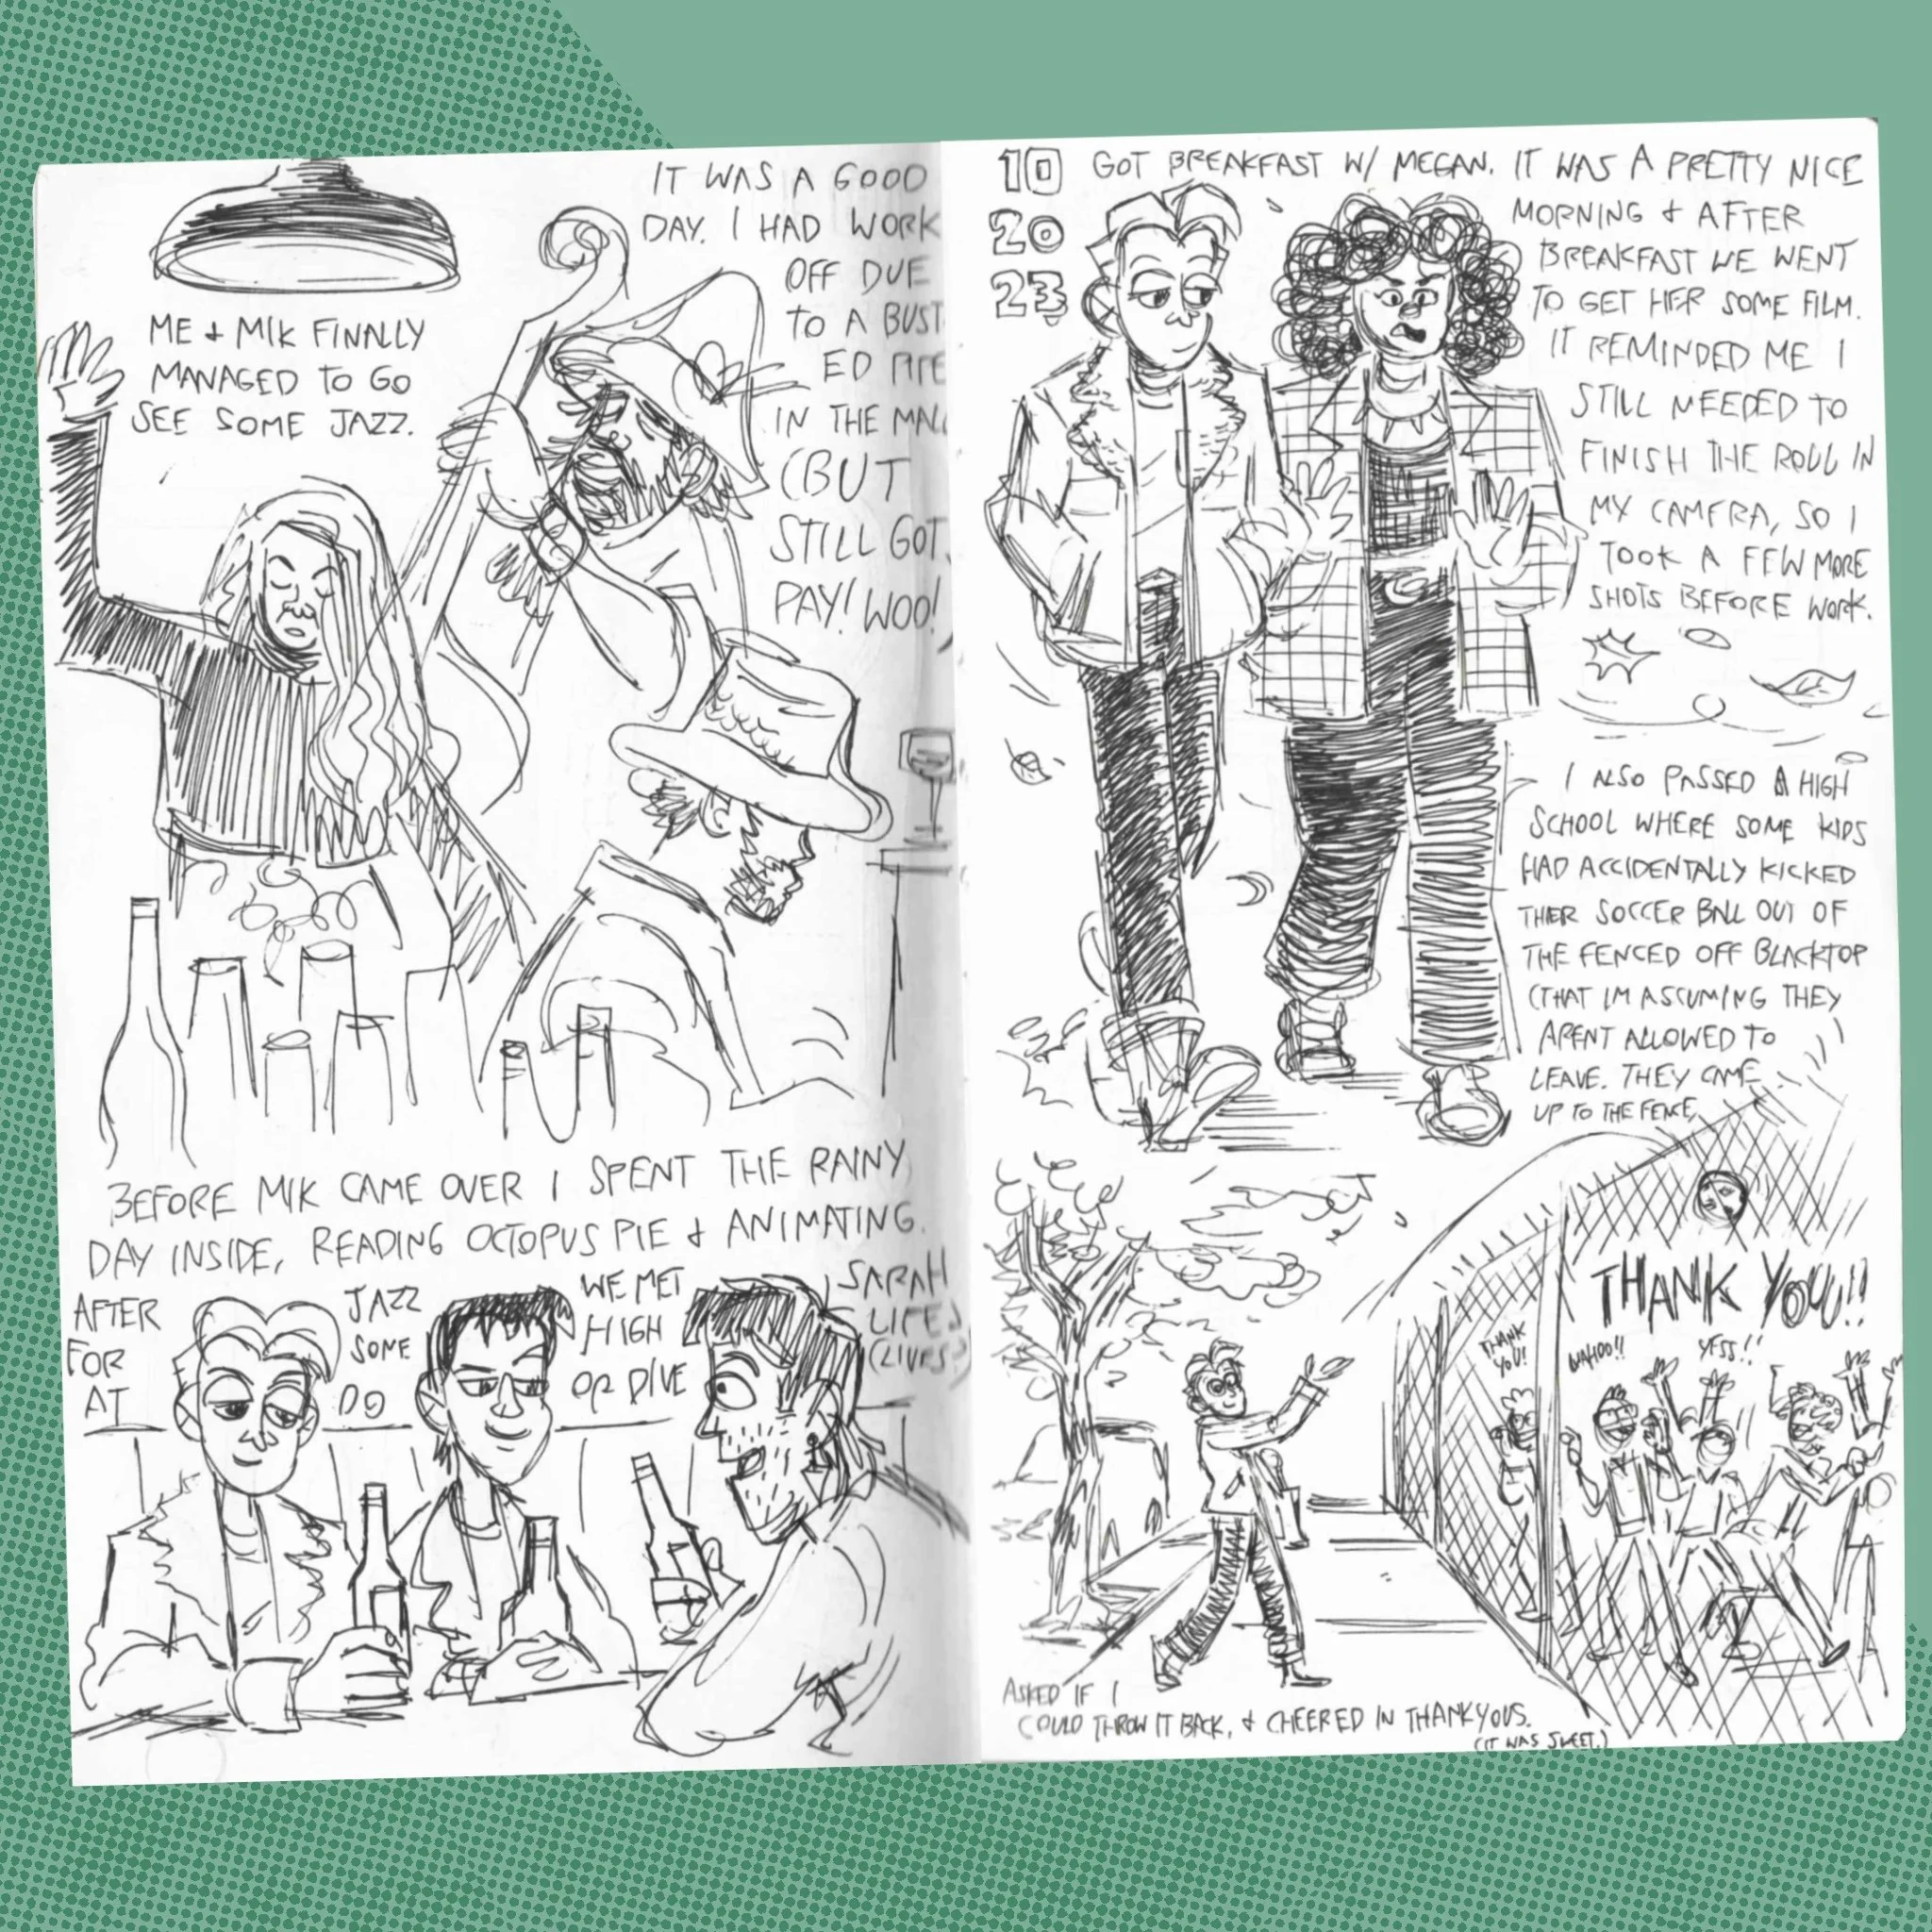 ME & MIK FINALLY
MANAGED TO GO
SEE SOME JAZZ.
IT WAS A GOOD
DAY. I HAD WORK
OFF DUE
TO A BUST
ED PIPE
IN THE MALL
(BUT
STILL GOT
PAY! WOO!)
BEFORE MIK CAME OVER I SPENT THE RAINY
DAY INSIDE, READING OCTOPUS PIE & ANIMATING.
AFTER JAZZ WE MET SARAH
FOR SOME HIGH LIFES
AT DO OR DIVE (LIVES?)
10
20
23
GOT BREAKFAST W/ MEGAN. IT WAS A PRETTY NICE
MORNING & AFTER
BREAKFAST WE WENT
TO GET HER SOME FILM.
IT REMINDED ME I
STILL NEEDED TO
FINISH THE ROLL IN
MY CAMERA, SO I
TOOK A FEW MORE
SHOTS BEFORE WORK.
I ALSO PASSED A HIGH
SCHOOL WHERE SOME KIDS
HAD ACCIDENTALLY KICKED
THEIR SOCCER BALL OUT OF
THE FENCED OFF BLACKTOP
(THAT IM ASSUMING THEY
ARENT ALLOWED TO
LEAVE. THEY CAME
UP TO THE FENCE,
THANK YOU!!
THANK
YOU!
WAHOO!!
YESS!!
ASKED IF I
COULD THROW IT BACK, & CHEERED IN THANKYOUS.
(IT WAS SWEET.)